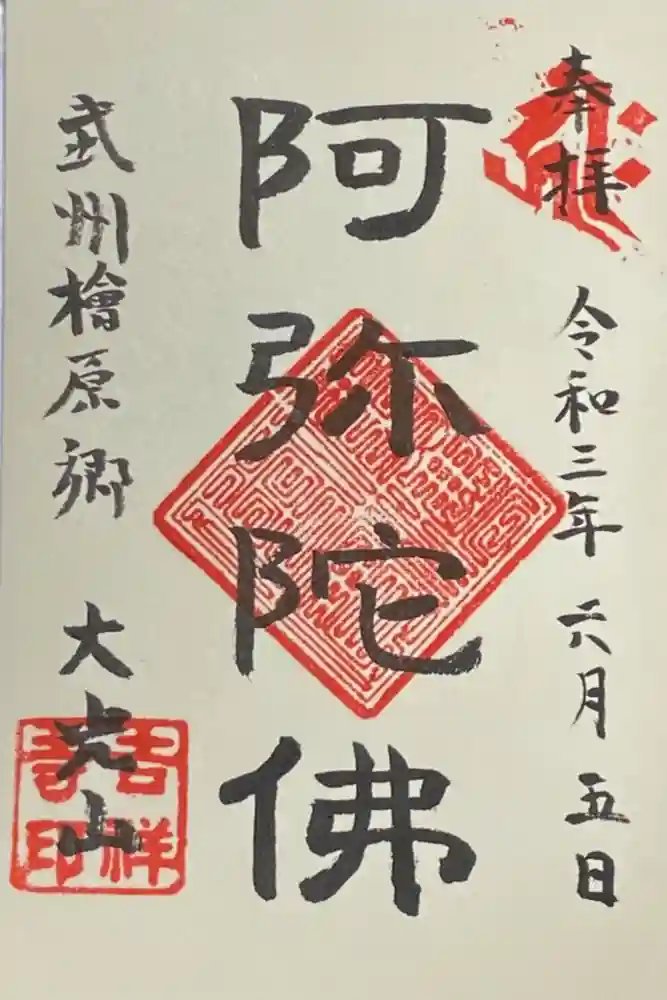 奉拝 令和三年 六月 五日
阿弥陀佛
武州檜原郷 大光山
吉祥寺印